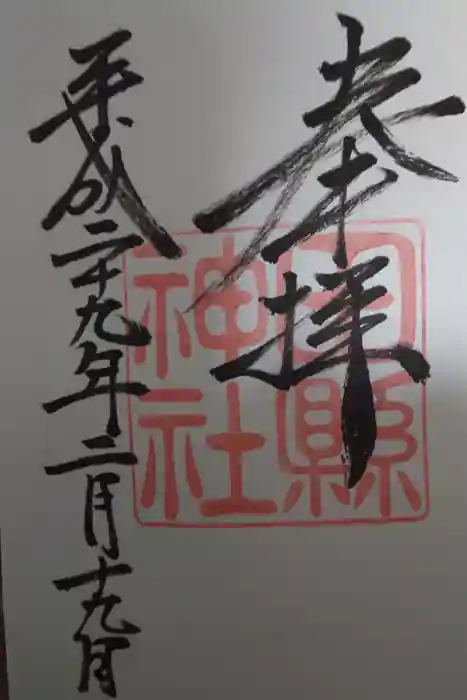 奉拝
田縣
神社
平成二十九年二月十九日